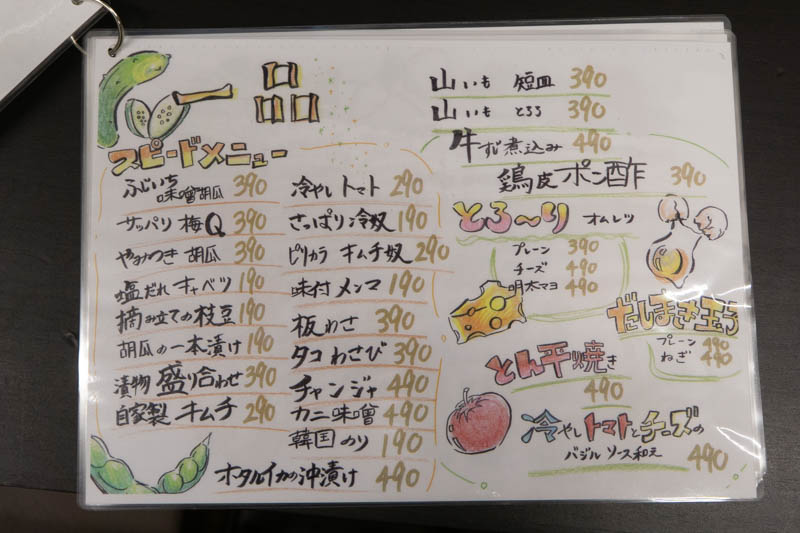 一品
スピードメニュー
ふじいち味噌胡瓜 390
サッパリ 梅Q 390
やみつき 胡瓜 390
塩だれ キャベツ 190
摘み立ての枝豆 190
胡瓜の一本漬け 190
漬物 盛り合わせ 390
自家製 キムチ 290
冷やし トマト 290
さっぱり 冷奴 190
ピリカラ キムチ奴 290
味付 メンマ 190
板わさ 390
タコ わさび 390
チャンジャ 490
カニ味噌 490
韓国のり 190
ホタルイカの沖漬け 490
山いも 短冊 390
山いも とろろ 390
牛すじ煮込み 490
鶏皮ポン酢 390
とろ〜り オムレツ
プレーン 390
チーズ 490
明太マヨ 490
だしまき玉子
プレーン 490
ねぎ 490
とん平焼き
490
冷やしトマトとチーズの
バジルソース和え 490